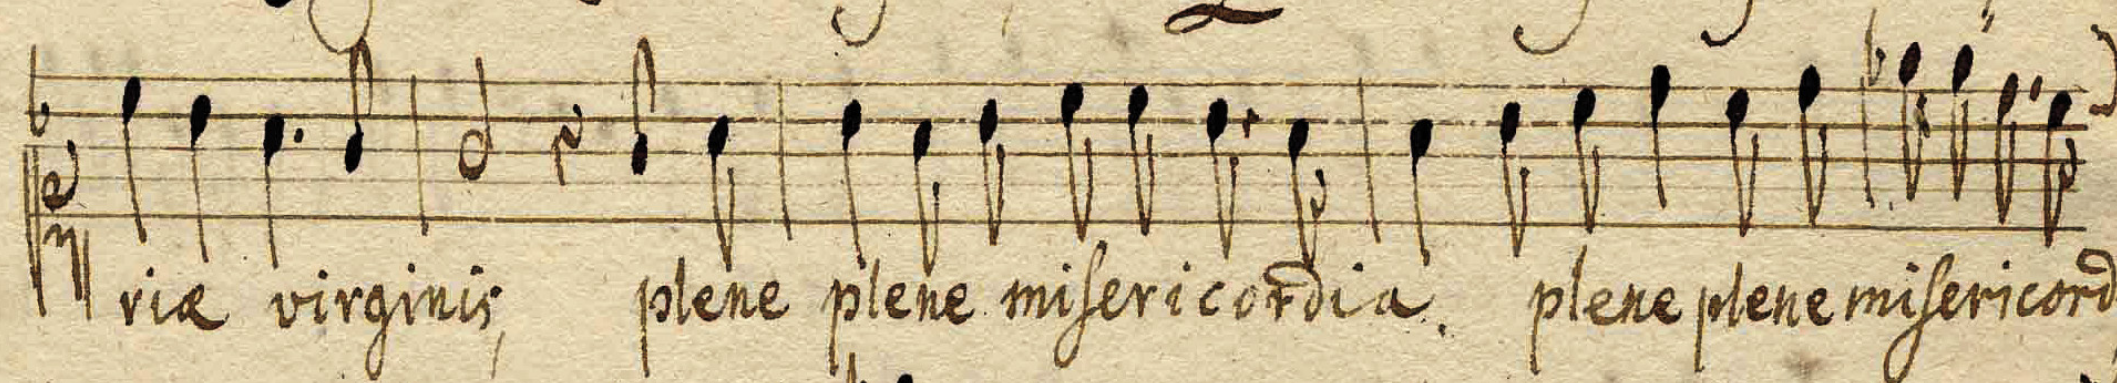 riæ virginis, plene plene miſericordia. plene plene miſericord